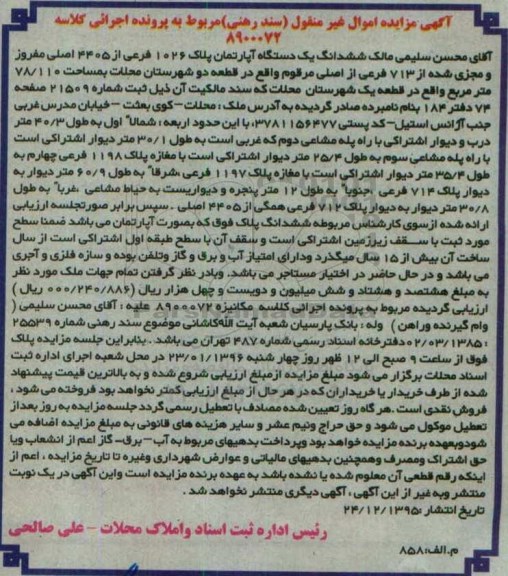 آگهی مزایده اموال غیر منقول (سند رهنی)مربوط به پرونده اجرائی کلاسه
۸۹۰۰۰۷۲
آقای محسن سلیمی مالک ششدانگ یک دستگاه آپارتمان پلاک ۱۰۲۶ فرعی از ۴۴۰۵ اصلی مفروز
و مجزی شده از ۷۱۳ فرعی از اصلی مرقوم واقع در قطعه دو شهرستان محلات بمساحت ۷۸/۱۱۰
متر مربع واقع در قطعه یک شهرستان محلات که سند مالکیت آن ذیل ثبت شماره ۲۱۵۰۹ صفحه
۷۴ دفتر ۱۸۴ بنام نامبرده صادر گردیده به آدرس ملک : محلات-کوی بعثت -خیابان مدرس غربی
جنب آژانس استیل-کد پستی ۳۷۸۱۱۵۶۴۷۷، با این حدود اربعه : شمالاً اول به طول ۴۰/۳ متر
درب و دیوار اشتراکی با راه پله مشاعی دوم که غربی است به طول ۳۰/۱ متر دیوار اشتراکی است
با راه پله مشاعی سوم به طول ۲۵/۴ متر دیوار اشتراکی است با مغازه پلاک ۱۱۹۸ فرعی چهارم به
طول ۳۵/۴ متر دیوار اشتراکی است با مغازه پلاک ۱۱۹۷ فرعی ،شرقاً به طول ۶۰/۹ متر دیوار به
دیوار پلاک ۷۱۴ فرعی ،جنوباً به طول ۱۲ متر پنجره و دیواریست به حیاط مشاعی ،غرباً به طول
۳۰/۸ متر دیوار به دیوار پلاک ۷۱۲ فرعی همگی از ۴۴۰۵ اصلی . سپس برابر صورتجلسه ارزیابی
ارائه شده ازسوی کارشناس مربوطه ششدانگ پلاک فوق که بصورت آپارتمان می باشد ضمنا سطح
مورد ثبت با سقف زیرزمین اشتراکی است و سقف آن با سطح طبقه اول اشتراکی است از سال
ساخت آن بیش از ۱۵ سال میگذرد ودارای امتیاز آب و برق و گاز وتلفن بوده و سازه فلزی و آجری
می باشد و در حال حاضر در اختیار مستاجر می باشد. وبادر نظر گرفتن تمام جهات ملک مورد نظر
به مبلغ هشتصد و هشتاد و شش میلیون و دویست و چهل هزار ریال (۰۰۰/۲۴۰/۸۸۶ ریال )
ارزیابی گردیده مربوط به پرونده اجرائی کلاسه مکانیزه ۸۹۰۰۰۷۲ علیه : آقای محسن سلیمی (
وام گیرنده وراهن ) وله : بانک پارسیان شعبه آیت الله کاشانی موضوع سند رهنی شماره ۲۵۵۳۹
: ۰۲/۰۳/۱۳۸۵ دفترخانه اسناد رسمی شماره ۴۸۷ تهران می باشد . بنابراین جلسه مزایده پلاک
فوق از ساعت ۹ صبح الی ۱۲ ظهر روز چهارشنبه ۲۳/۰۱/۱۳۹۶ در محل شعبه اجرای اداره ثبت
اسناد محلات برگزار می شود مبلغ مزایده ازمبلغ ارزیابی شروع شده و به بالاترین قیمت پیشنهاد
شده از طرف خریدار یا خریداران که در هر حال از مبلغ ارزیابی کمتر نخواهد بود فروخته می شود ،
فروش نقدی است .هر گاه روز تعیین شده مصادف با تعطیل رسمی گردد جلسه مزایده به روز بعد از
تعطیل موکول می شود و حق حراج ونیم عشر و سایر هزینه های قانونی به مبلغ مزایده اضافه می
شودوبعهده برنده مزایده خواهد بود وپرداخت بدهیهای مربوط به آب- برق- گاز اعم از انشعاب ویا
حق اشتراک ومصرف وهمچنین بدهیهای مالیاتی و عوارض شهرداری وغیره تا تاریخ مزایده ، اعم از
اینکه رقم قطعی آن معلوم شده یا نشده باشد به عهده برنده مزایده است واین آگهی در یک نوبت
منتشر وبه غیر از این آگهی ، آگهی دیگری منتشر نخواهد شد .
تاریخ انتشار :۲۴/۱۲/۱۳۹۵
رئیس اداره ثبت اسناد واملاک محلات - علی صالحی
م.الف:۸۵۸